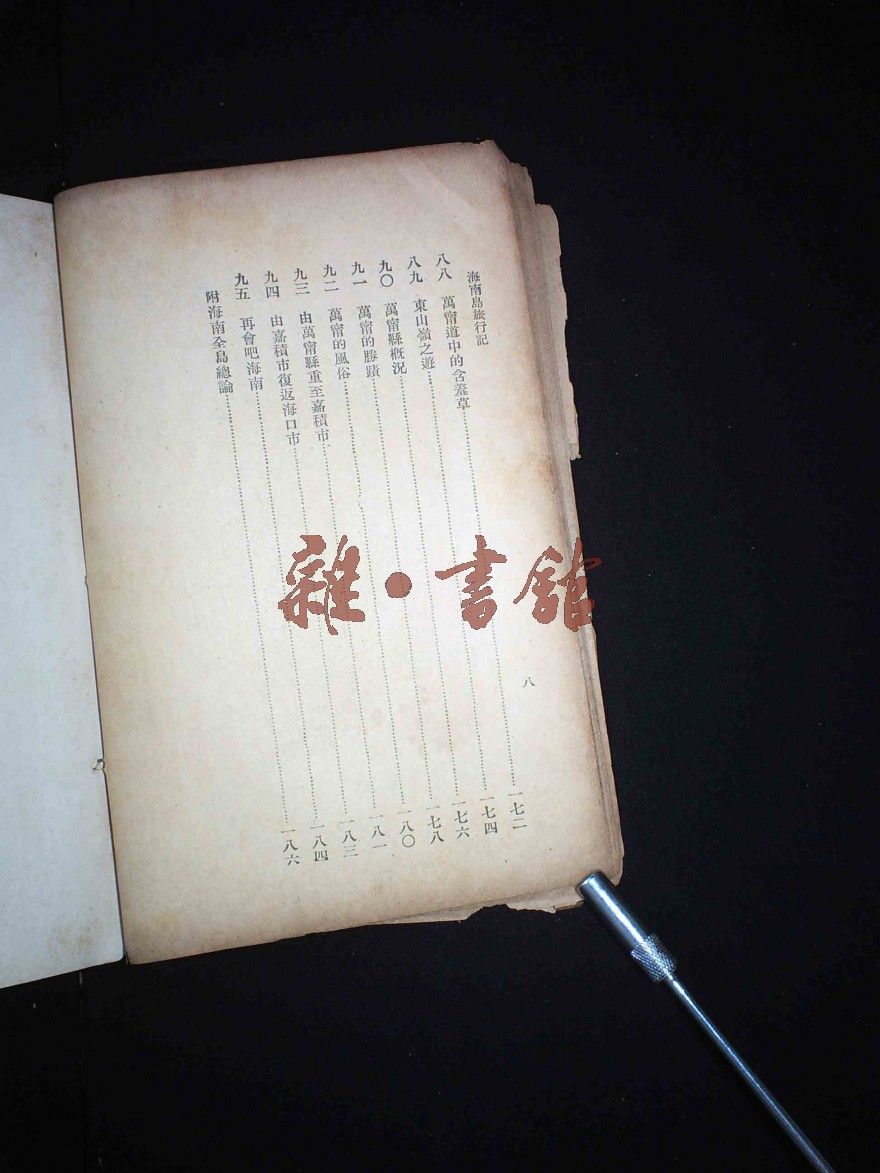 海南島旅行記
八
八八 萬甯道中的含羞草……一七二
八九 東山嶺之遊……一七四
九〇 萬甯縣槪況……一七六
九一 萬甯的勝蹟……一七八
九二 萬甯的風俗……一八〇
九三 由萬甯縣重至嘉積市……一八一
九四 由嘉積市復返海口市……一八三
九五 再會吧海南……一八四
附海南全島總論……一八六
雜·書館